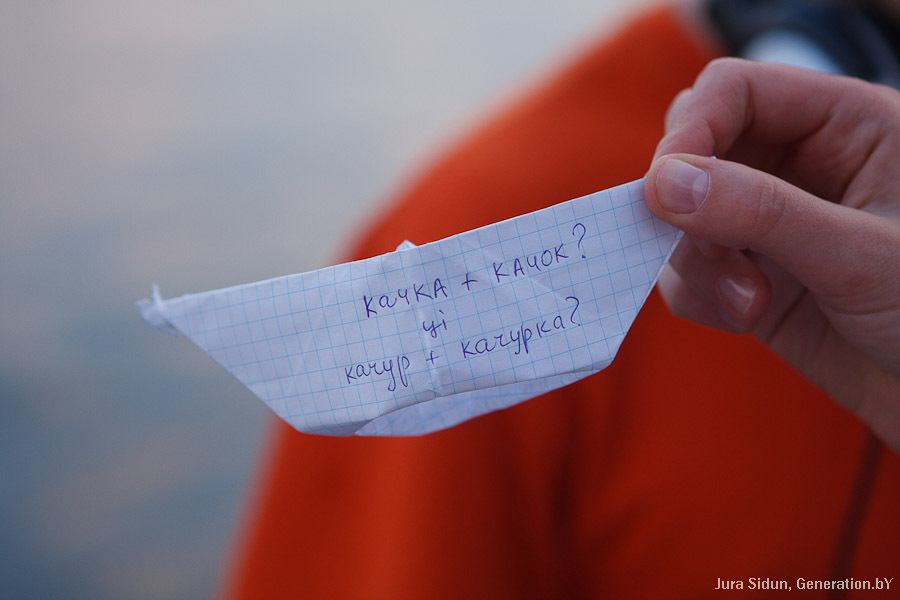 качка + качок?
ці
качур + качурка?
Jura Sidun, Generation.bY